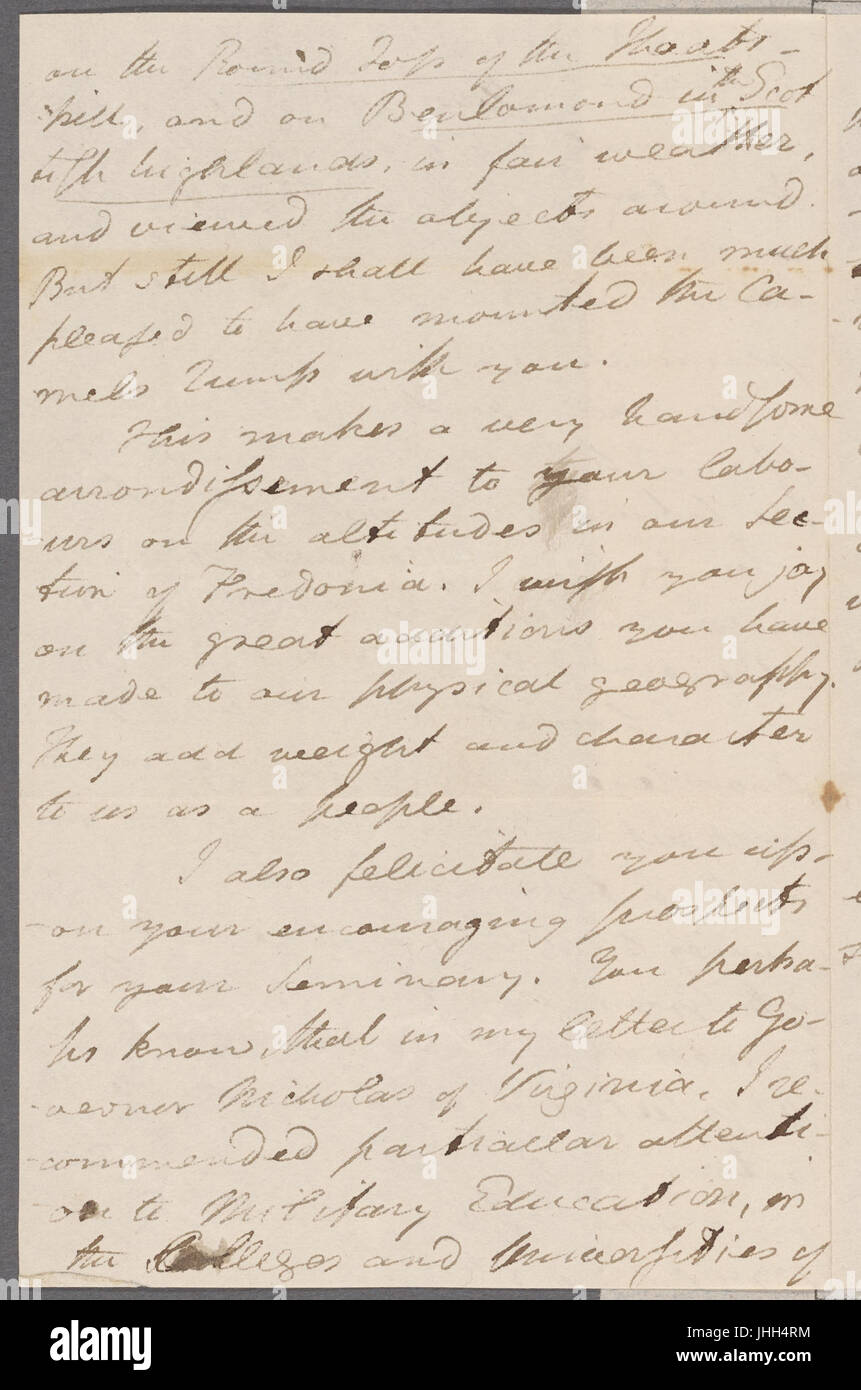 on the Round Top of the Kaats-
kill, and on Benlomond in the Scot
tish highlands, in fair weather,
and viewed the objects around.
But still I shall have been much
pleased to have mounted the Ca-
mels rump with you.
This makes a very handsome
arrondissement to your labo-
urs on the altitudes in our sec-
tion of Fredonia. I wish you joy
on the great additions you have
made to our physical geography.
They add weight and character
to us as a people.
I also felicitate you up-
on your encouraging prospects
for your Seminary. You perha-
ps know, that in my letter to Go-
vernor Nicholas of Virginia, I re-
commended particular attenti-
on to Military Education, in
the Colleges and Universities of
alamy
alamy stock photo
Image ID: JHH4RM
www.alamy.com